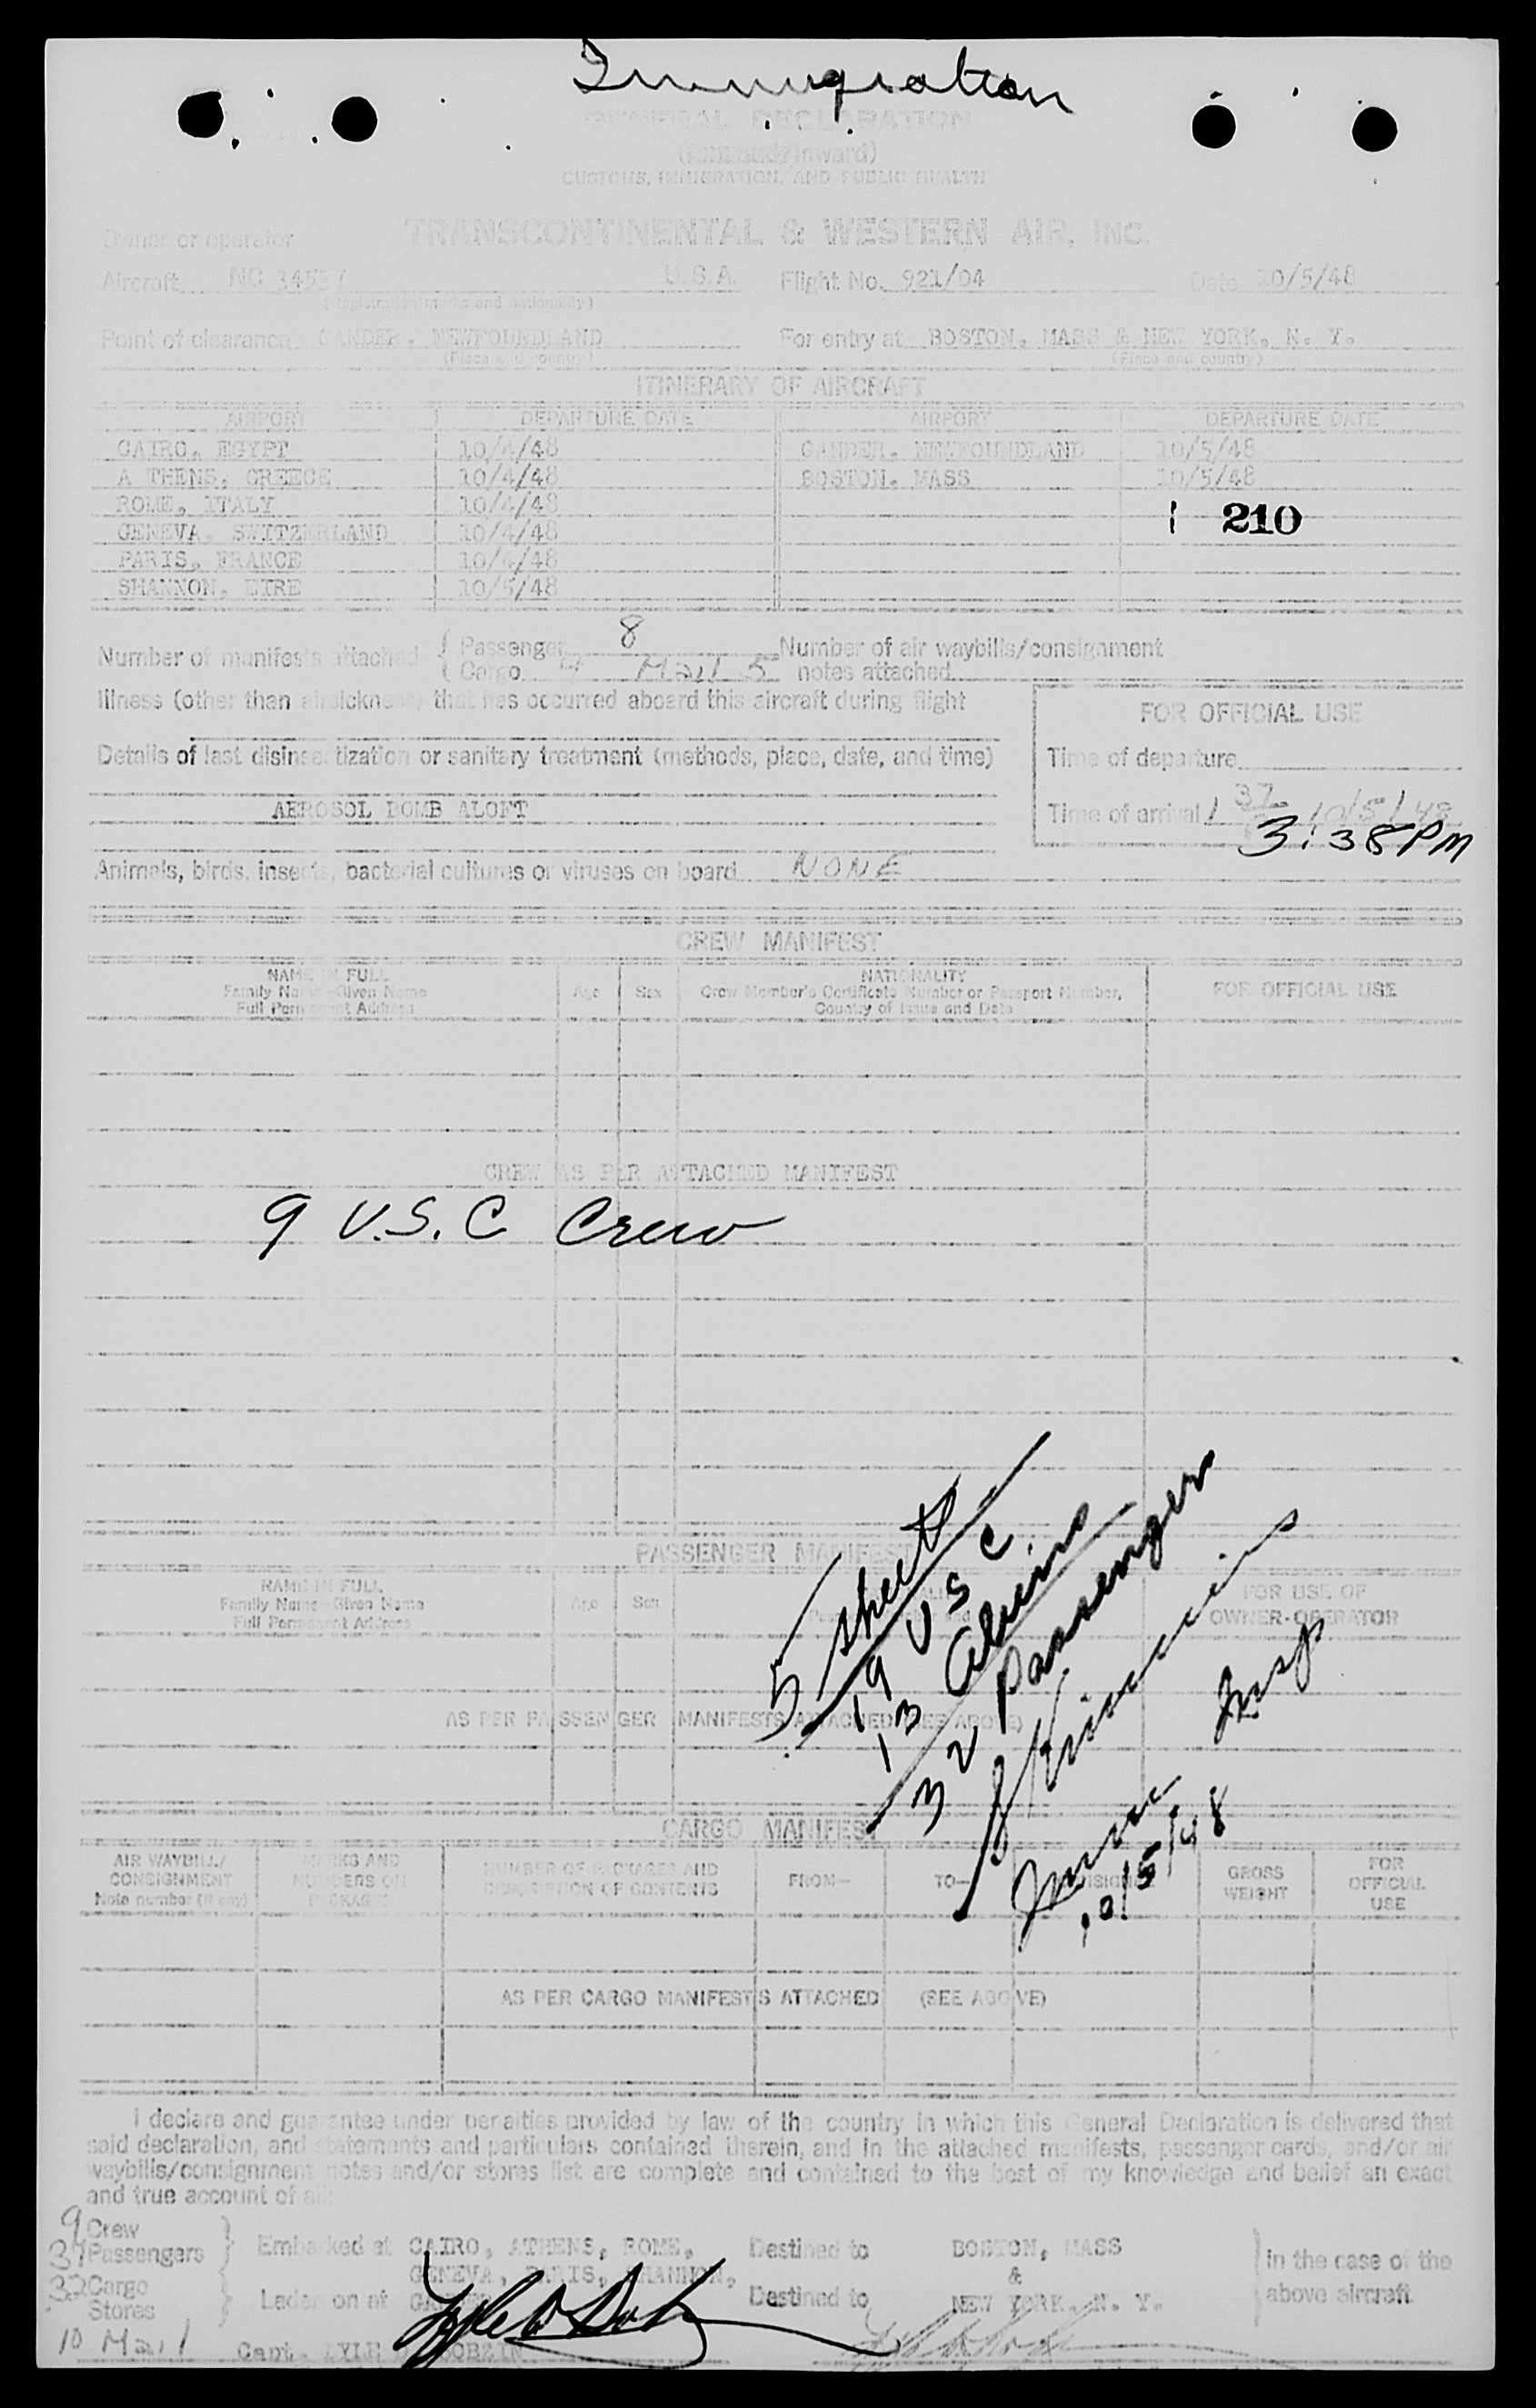 Immigration
GENERAL DECLARATION
(Outward/Inward)
CUSTOMS, IMMIGRATION, AND PUBLIC HEALTH
Owner or operator TRANSCONTINENTAL & WESTERN AIR, INC.
Aircraft NC 34537 U.S.A. Flight No. 921/04 Date 10/5/48
(Registration marks and nationality)
Point of clearance GANDER, NEWFOUNDLAND For entry at BOSTON, MASS & NEW YORK, N. Y.
(Place and country) (Place and country)
ITINERARY OF AIRCRAFT
AIRPORT DEPARTURE DATE AIRPORT DEPARTURE DATE
CAIRO, EGYPT 10/4/48 GANDER, NEWFOUNDLAND 10/5/48
A THENS, GREECE 10/4/48 BOSTON, MASS 10/5/48
ROME, ITALY 10/4/48
210
GENEVA, SWITZERLAND 10/4/48
PARIS, FRANCE 10/4/48
SHANNON, EIRE 10/5/48
Number of manifests attached { Passenger 8 Number of air waybills/consignment
{ Cargo 9 Mail 5 notes attached
Illness (other than airsickness) that has occurred aboard this aircraft during flight
FOR OFFICIAL USE
Details of last disinsectization or sanitary treatment (methods, place, date, and time)
Time of departure
AEROSOL BOMB ALOFT
Time of arrival 1 37 10/5/48
3:38 PM
Animals, birds, insects, bacterial cultures or viruses on board NONE
CREW MANIFEST
NAME IN FULL NATIONALITY
Family Name—Given Name Age Sex Crew Member's Certificate Number or Passport Number, FOR OFFICIAL USE
Full Permanent Address Country of Issue and Date
CREW AS PER ATTACHED MANIFEST
9 U.S.C Crew
5 sheets
19 U S C
13 Aliens
32 Passenger
Insp
10/5/48
PASSENGER MANIFEST
NAME IN FULL FOR USE OF
Family Name—Given Name Age Sex OWNER-OPERATOR
Full Permanent Address
AS PER PASSENGER MANIFESTS ATTACHED (SEE ABOVE)
CARGO MANIFEST
AIR WAYBILL/ MARKS AND GROSS FOR
CONSIGNMENT NUMBERS ON NUMBER OF PACKAGES AND FROM— TO— WEIGHT OFFICIAL
Note number (if any) PACKAGES DESCRIPTION OF CONTENTS USE
AS PER CARGO MANIFESTS ATTACHED (SEE ABOVE)
I declare and guarantee under penalties provided by law of the country in which this General Declaration is delivered that
said declaration, and statements and particulars contained therein, and in the attached manifests, passenger cards, and/or air
waybills/consignment notes and/or stores list are complete and contained to the best of my knowledge and belief an exact
and true account of all:
9 Crew
37 Passengers } Embarked at CAIRO, ATHENS, ROME, Destined to BOSTON, MASS in the case of the
32 Cargo GENEVA, PARIS, SHANNON, & above aircraft
Stores } Laden on at Destined to NEW YORK, N. Y.
10 Mail Capt. LYLE